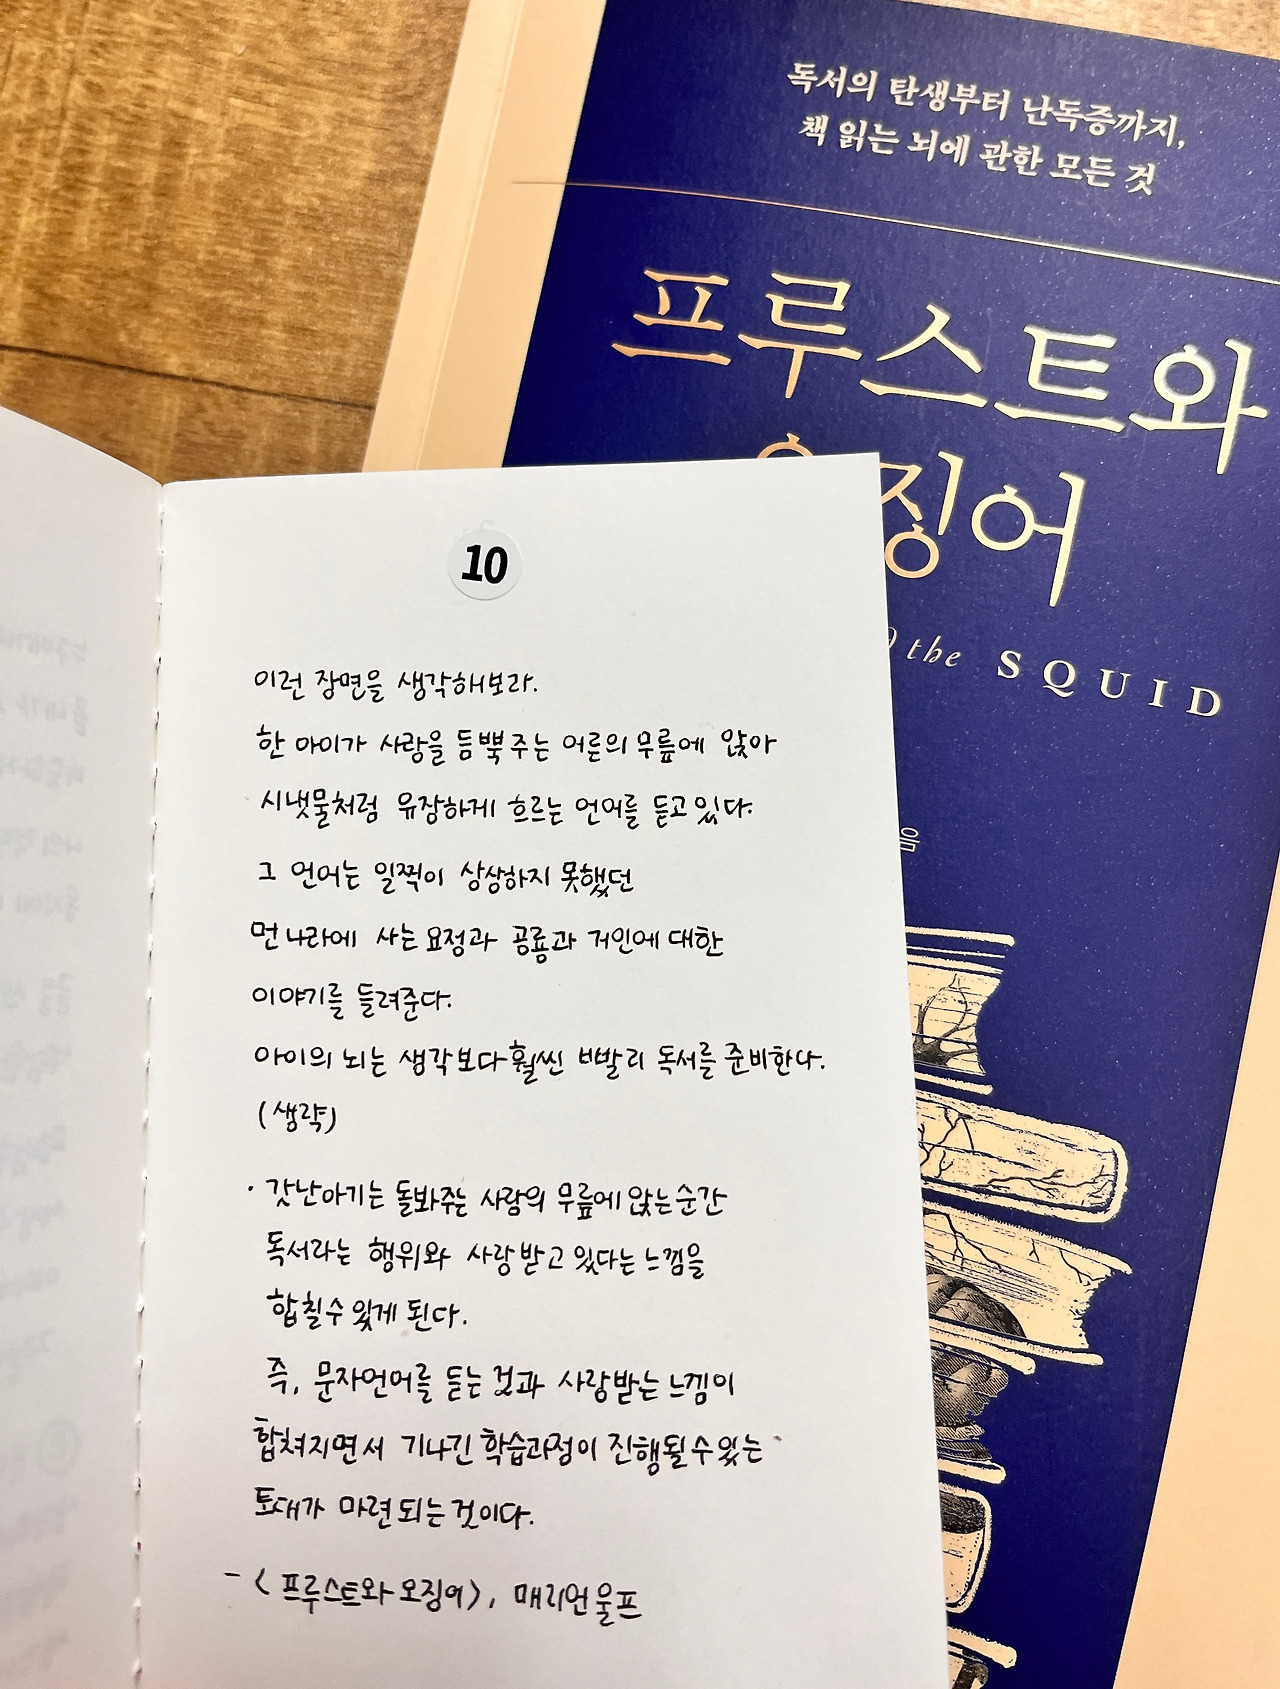 독서의 탄생부터 난독증까지,
책 읽는 뇌에 관한 모든 것
프루스트와
징어
the SQUID
음
10
이런 장면을 생각해보라.
한 아이가 사랑을 듬뿍 주는 어른의 무릎에 앉아
시냇물처럼 유장하게 흐르는 언어를 듣고 있다.
그 언어는 일찍이 상상하지 못했던
먼 나라에 사는 요정과 공룡과 거인에 대한
이야기를 들려준다.
아이의 뇌는 생각보다 훨씬 빨리 독서를 준비한다.
(생략)
· 갓난아기는 돌봐주는 사람의 무릎에 앉는 순간
독서라는 행위와 사랑받고 있다는 느낌을
합칠 수 있게 된다.
즉, 문자언어를 듣는 것과 사랑받는 느낌이
합쳐지면서 기나긴 학습과정이 진행될 수 있는
토대가 마련되는 것이다.
- <프루스트와 오징어>, 매리언 울프